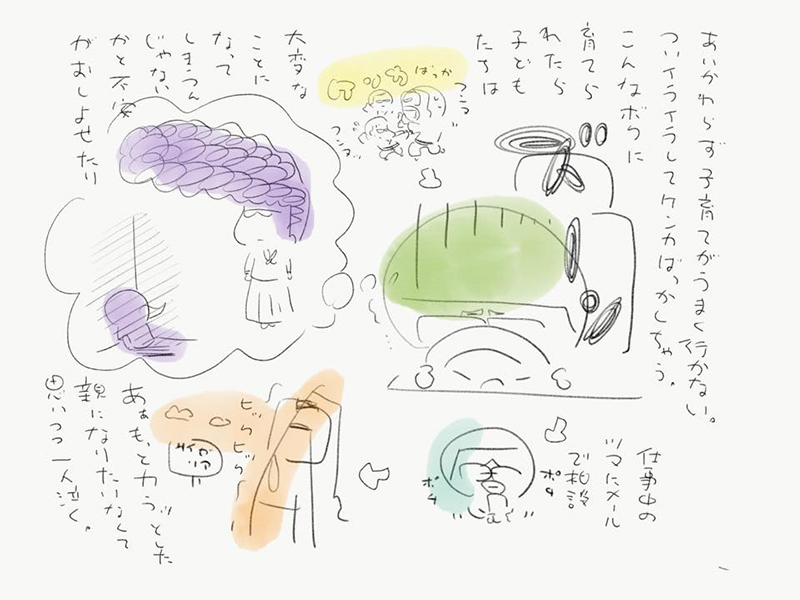 あいかわらず子育てがうまく行かない。
ついイライラしてケンカばっかしちゃう。
こんなボクに
育てら
れたら
子ども
たちは
大変な
ことに
なって
しまうん
じゃない
かと不安
がおしよせたり
ケンカばっか
フンフ
フンフ
仕事中の
ツマにメール
で相談
ポチ
ポチ
ビックビック
あぁも、と力
親になりたいなくて
思いつつ一人泣く。